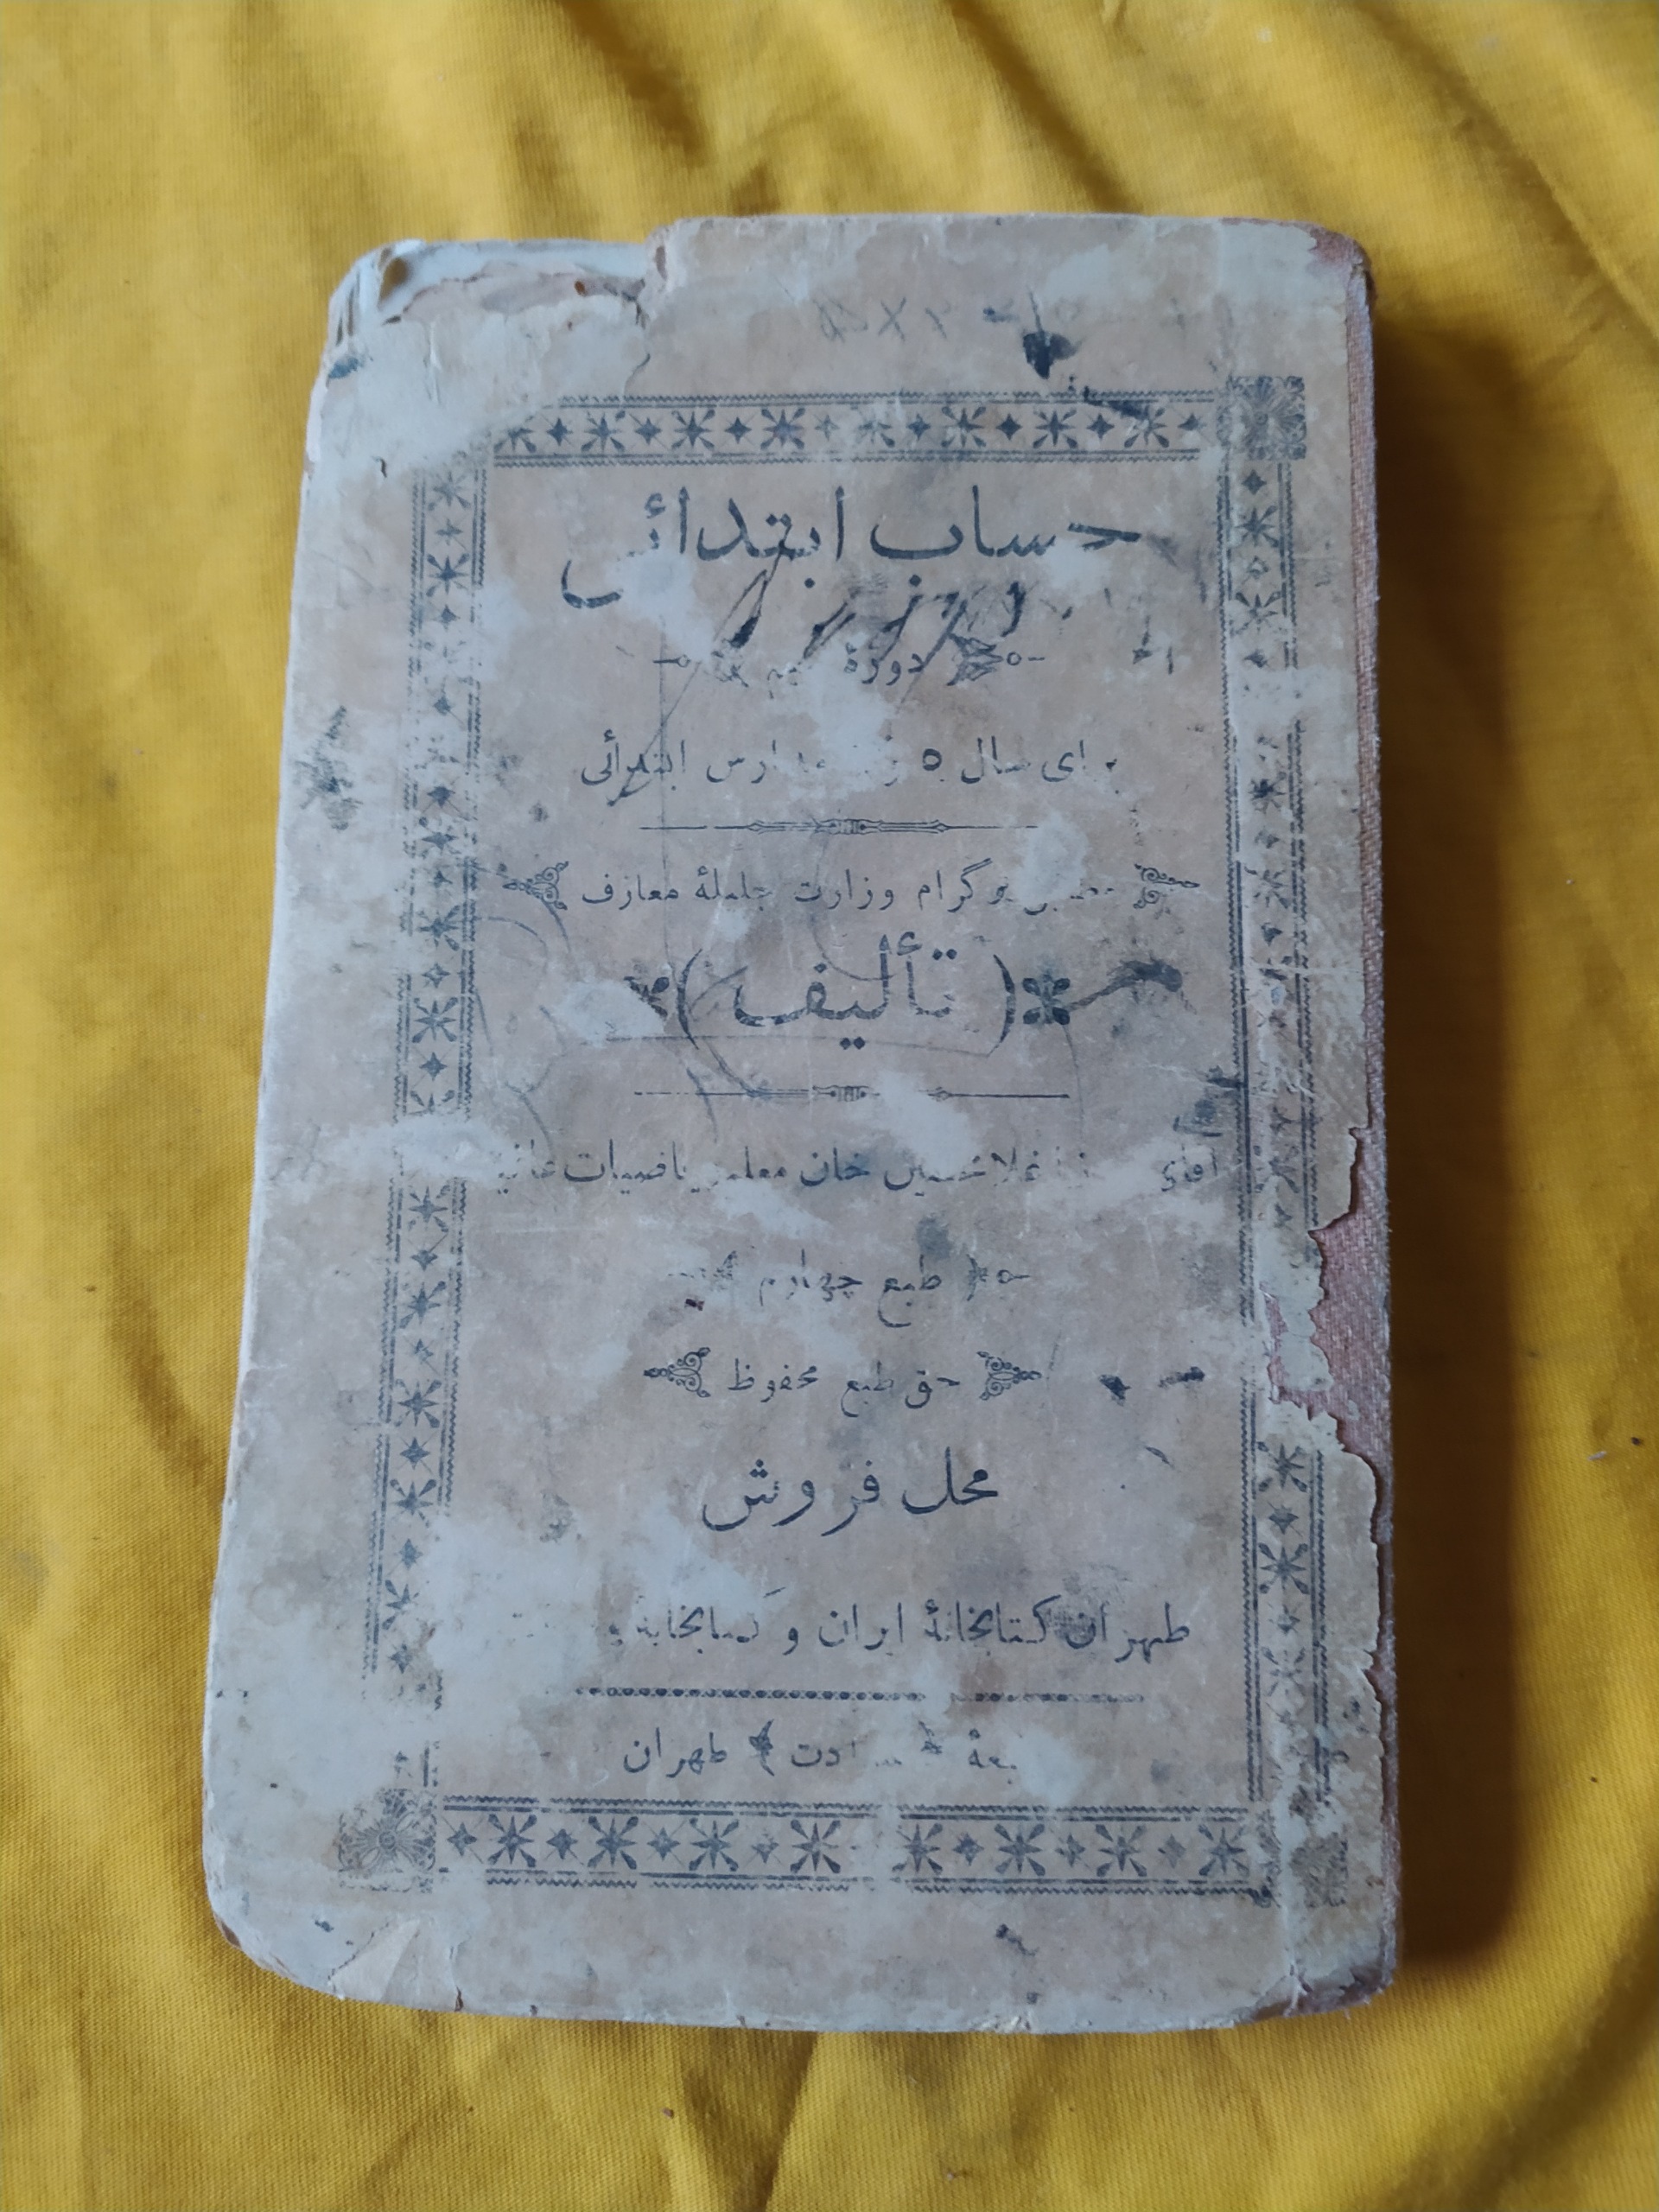 حساب ابتدائی
دورهٔ
برای سال ۵ و مدارس ابتدائی
پروگرام وزارت جلیلهٔ معارف
( تألیف )
آقای میرزا غلامحسین خان معلم ریاضیات
طبع چهارم
حق طبع محفوظ
محل فروش
طهران کتابخانهٔ ایران و کتابخانهٔ
طهران